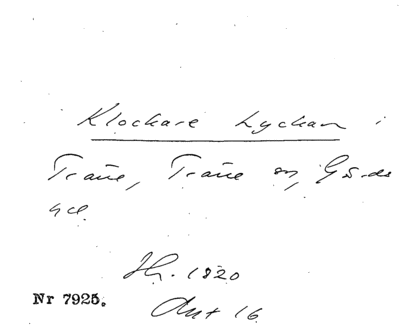 Klockare Lyckan i
Trane, Trane sn, Gärds
hd.
Hr. 1820
Nr 7925.
Akt 16